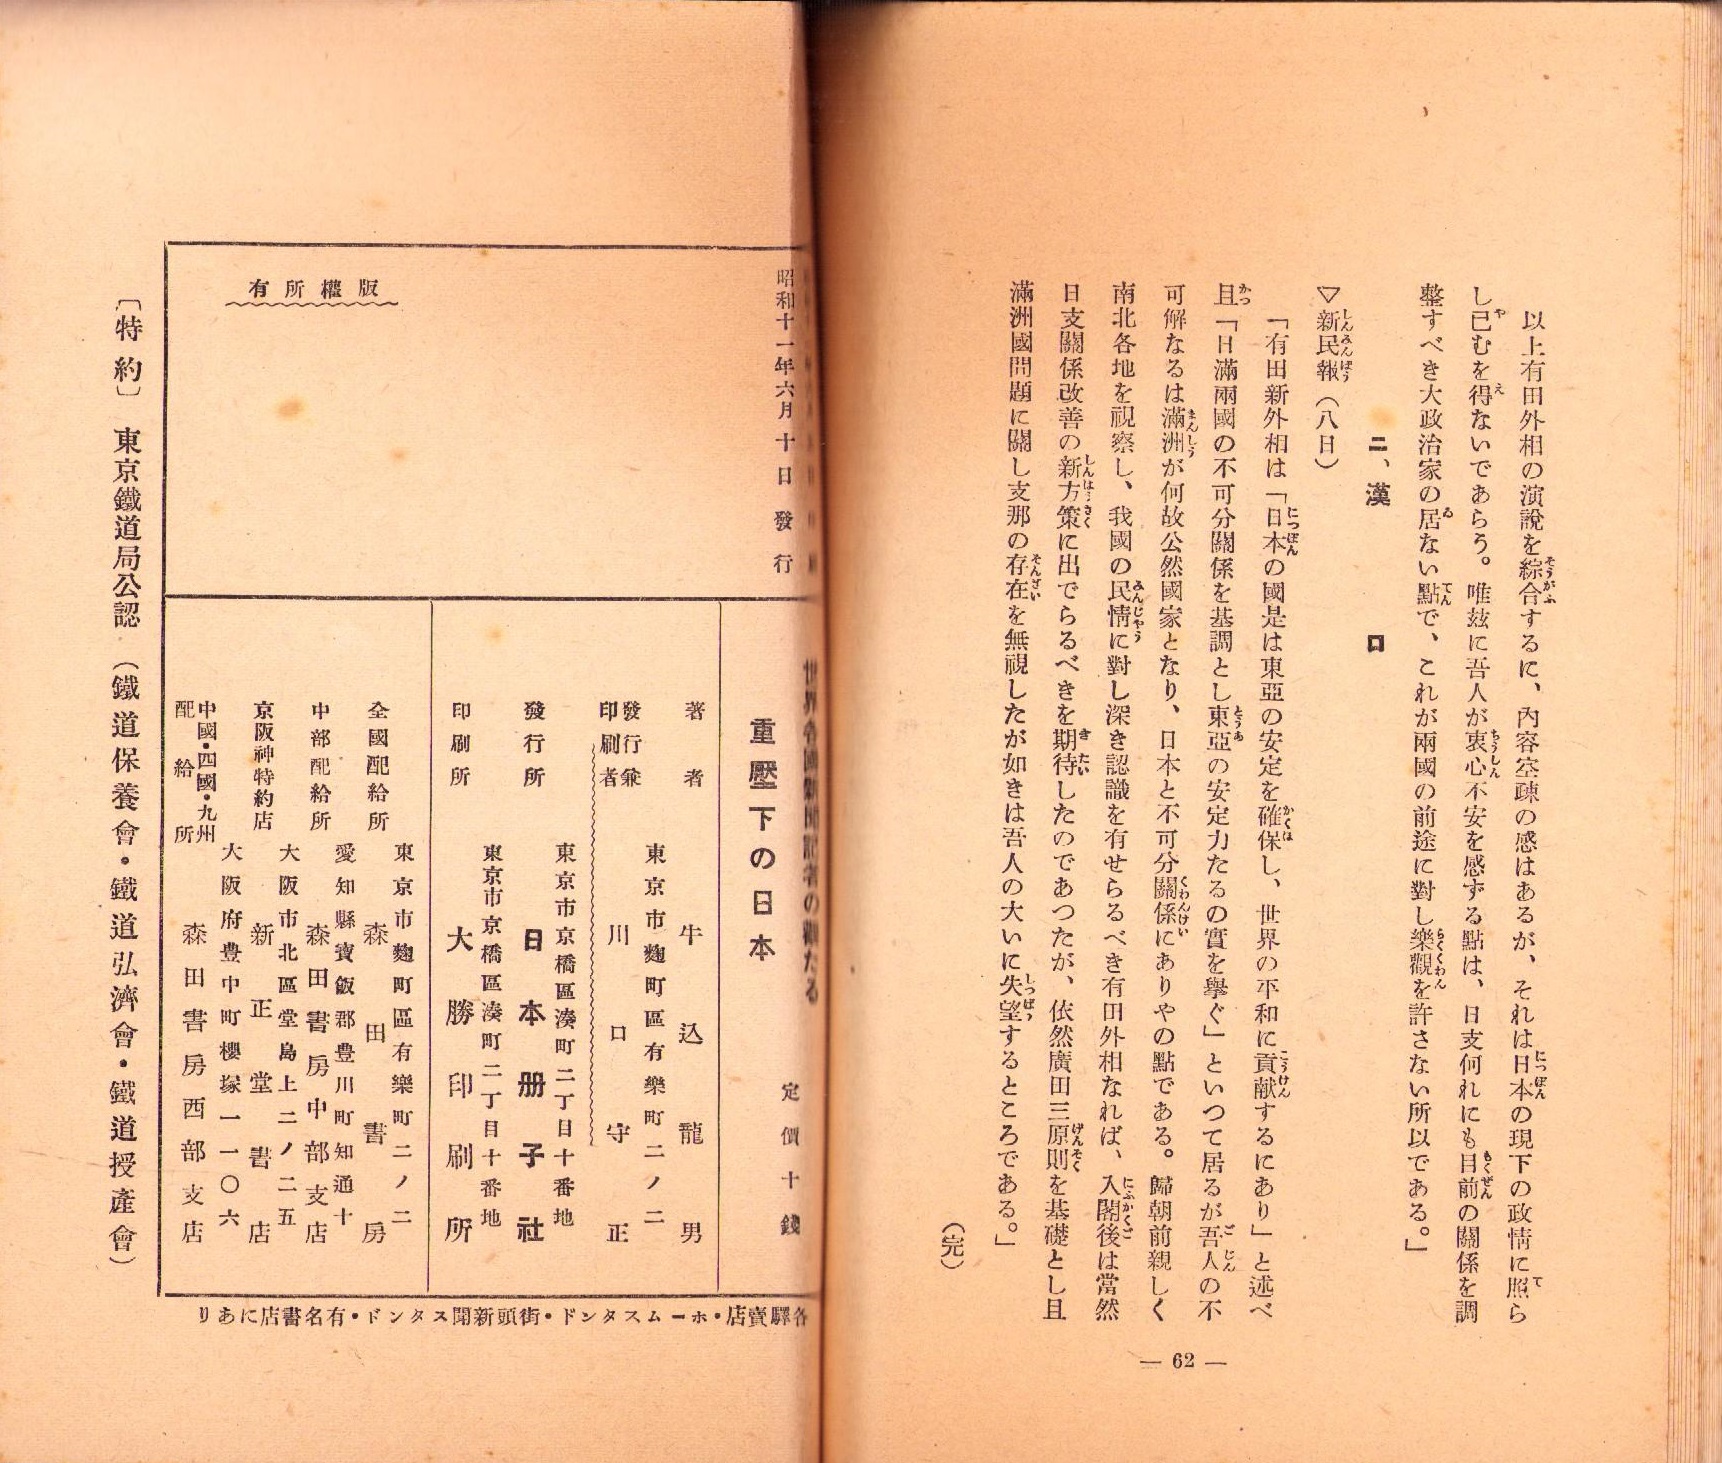 以上有田外相の演說を綜合するに、內容空疎の感はあるが、それは日本の現下の政情に照ら
し已むを得ないであらう。唯玆に吾人が衷心不安を感ずる點は、日支何れにも目前の關係を調
整すべき大政治家の居ない點で、これが兩國の前途に對し樂觀を許さない所以である。」
二、漢口
▽新民報（八日）
「有田新外相は「日本の國是は東亞の安定を確保し、世界の平和に貢献するにあり」と述べ
且「日滿兩國の不可分關係を基調とし東亞の安定力たるの實を擧ぐ」といつて居るが吾人の不
可解なるは滿洲が何故公然國家となり、日本と不可分關係にありやの點である。歸朝前親しく
南北各地を視察し、我國の民情に對し深き認識を有せらるべき有田外相なれば、入閣後は當然
日支關係改善の新方策に出でらるべきを期待したのであつたが、依然廣田三原則を基礎とし且
滿洲國問題に關し支那の存在を無視したが如きは吾人の大いに失望するところである。」
（完）
― 62 ―
昭和十一年六月十日發行
版權所有
世界各國新聞記者の觀たる
重壓下の日本
定價十錢
著者 牛込龍男
東京市麴町區有樂町二ノ二
發行兼印刷者 川口守正
東京市京橋區湊町二丁目十番地
發行所 日本册子社
東京市京橋區湊町二丁目十番地
印刷所 大勝印刷所
東京市麴町區有樂町二ノ二
全國配給所 森田書房
愛知縣寶飯郡豊川町知通十
中部配給所 森田書房中部支店
大阪市北區堂島上二ノ二五
京阪神特約店 新正堂書店
大阪府豊中町櫻塚一一〇六
中國・四國・九州配給所 森田書房西部支店
各驛賣店・ホームスタンド・街頭新聞スタンド・有名書店にあり
〔特約〕 東京鐵道局公認 （鐵道保養會・鐵道弘濟會・鐵道授產會）